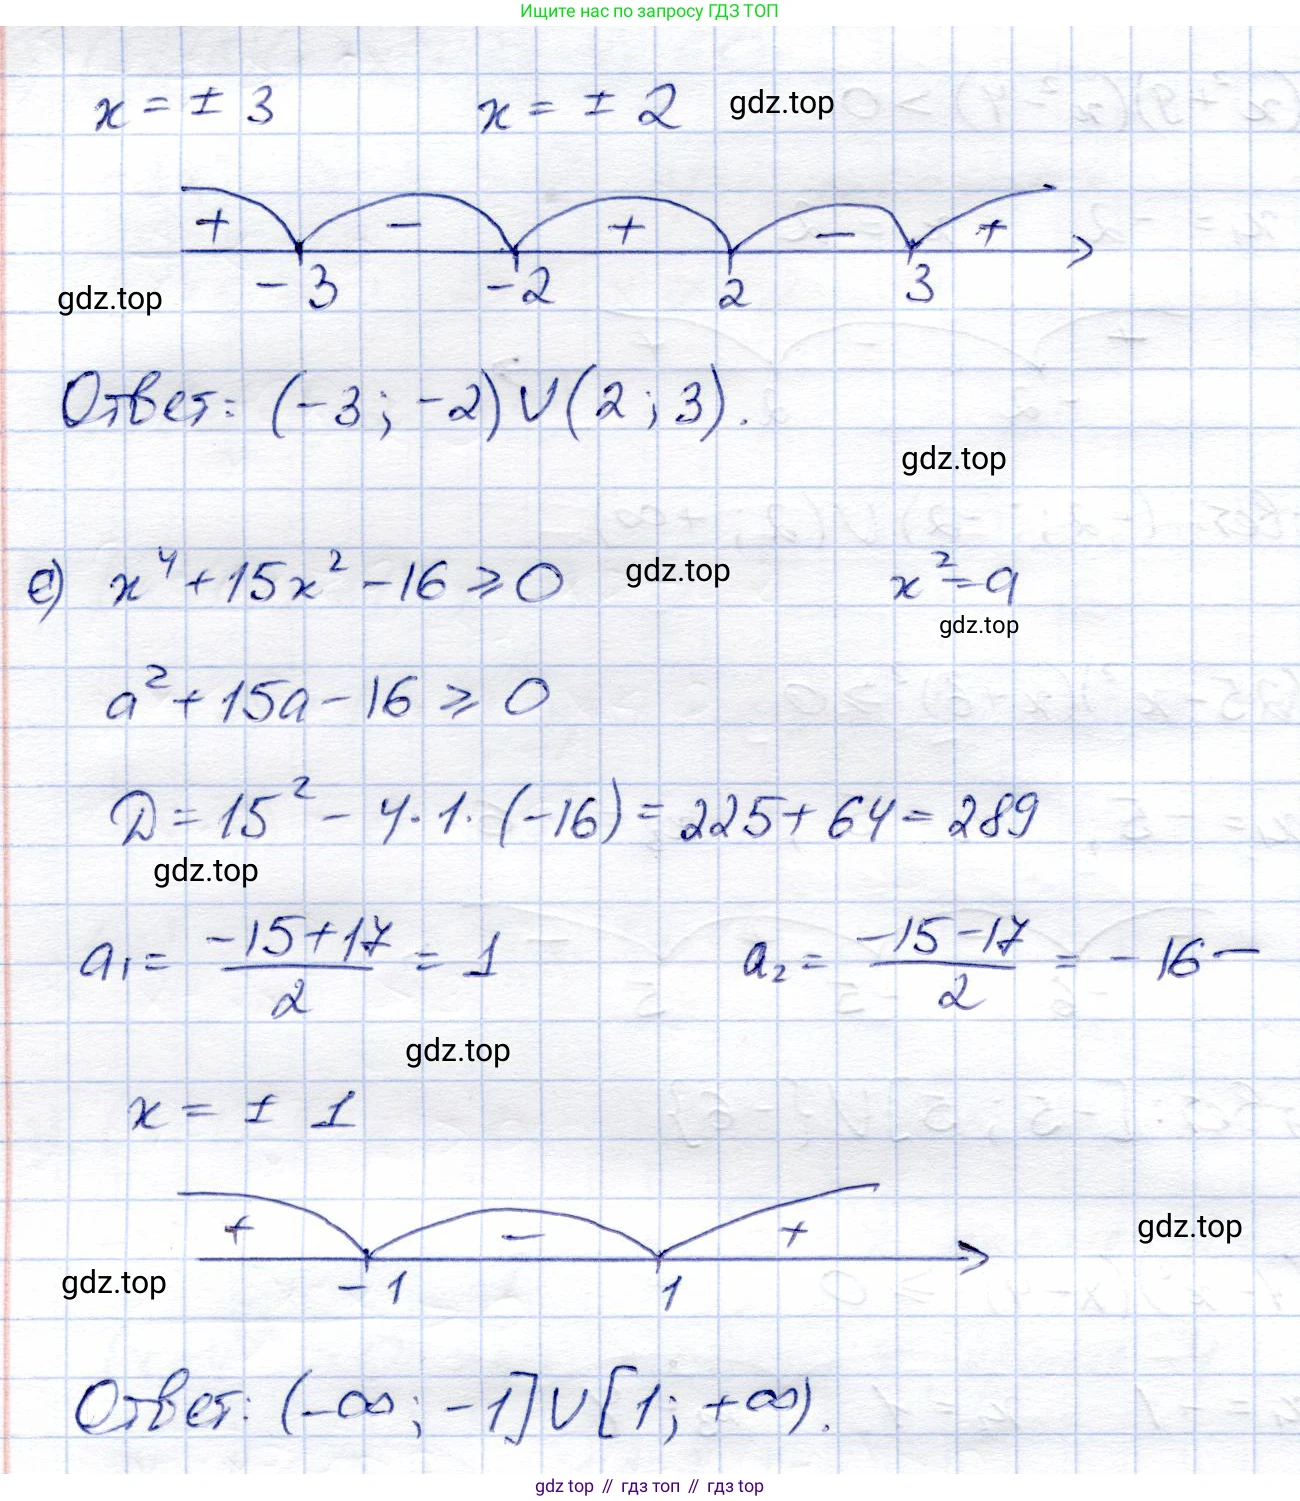 Ищите нас по запросу ГДЗ ТОП
x = ± 3 x = ± 2 gdz.top
+ − + − +
−3 −2 2 3
gdz.top
Ответ: (−3; −2) ∪ (2; 3).
gdz.top
е) x⁴ + 15x² − 16 ⩾ 0 gdz.top x² = a
gdz.top
a² + 15a − 16 ⩾ 0
D = 15² − 4·1·(−16) = 225 + 64 = 289
gdz.top
a₁ = (−15+17)/2 = 1 a₂ = (−15−17)/2 = −16 −
gdz.top
x = ± 1
+ − + gdz.top
gdz.top −1 1
Ответ: (−∞; −1] ∪ [1; +∞).
gdz.top // гдз топ // гдз top